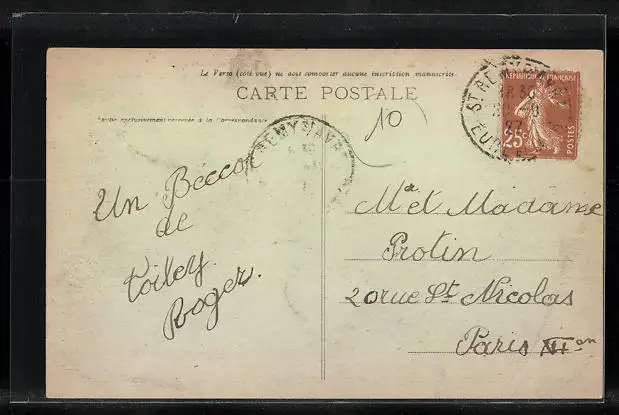 Le Verso (côté vue) ne doit comporter aucune inscription manuscrite.
CARTE POSTALE
Partie exclusivement réservée à la Correspondance
10
RÉPUBLIQUE FRANÇAISE
25c
POSTES
ST REMY S/AVRE
EURE
REMY S/AVRE
Un
de
Roger.
Mr et Madame
Protin
20 rue St Nicolas
Paris